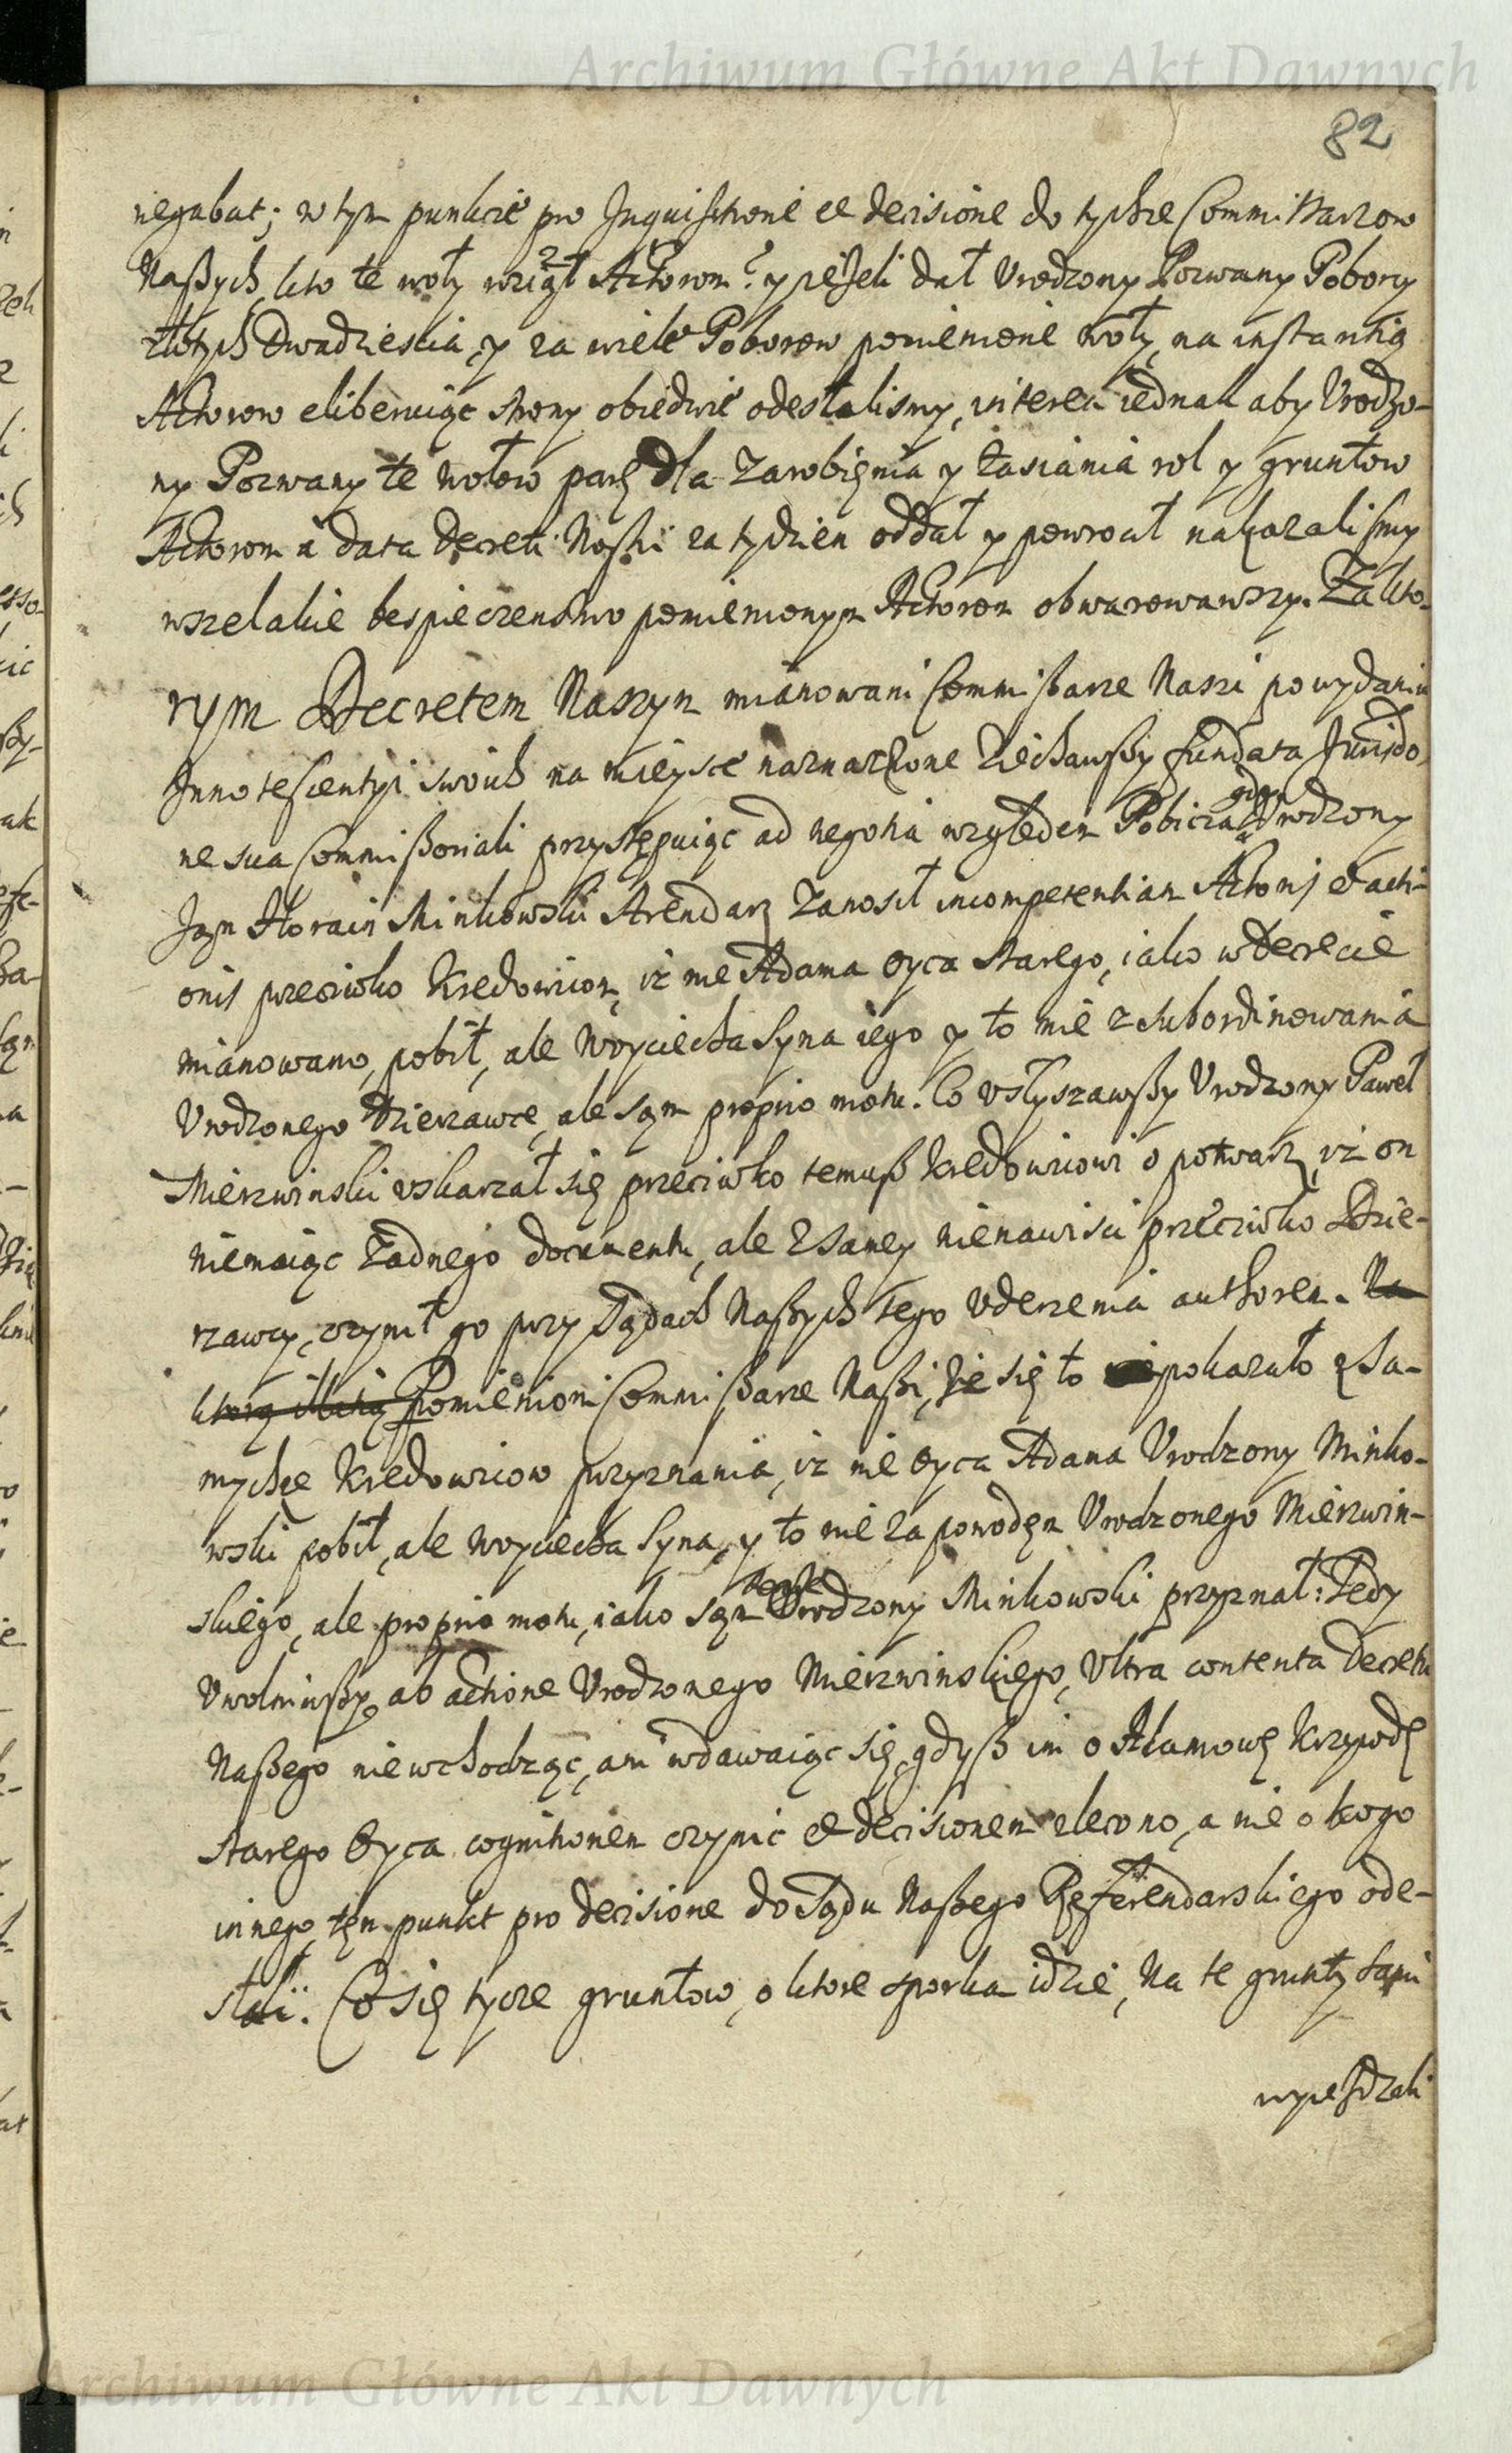 Archiwum Główne Akt Dawnych
82
negabat; w tym punkcie pro Inquisitione et decisione do tychże Commissarzow
Naszych, kto te woły wziął Actorom? y jeżeli dał Urodzony Pozwany Poborcy
złotych Dwadziescia, y za wiele Poborow pomienione woły, na instantią
Actorow eliberuiąc strony obiedwie odesłalismy, interea iednak aby Urodzo-
ny Pozwany te wołow parę dla Zarobienia y Zasiania rol y gruntow
Actorom a data Decreti Nostri za tydzien oddał y powrocił nakazalismy
wszelakie bespieczenstwo pomienionym Actorom obwarowawszy. Za kto-
rym Decretem Naszym mianowani Commissarze Naszi po wydaniu
Innotescentyi swoich na mieysce naznaczone ziechawszy fundata Jurisdo
ne sua Commissoriali przystępuiąc ad negotia względem Pobicia gdy Urodzony
Jan Horain Minkowski Arendarz zanosił incompetentiam Actoris et acti-
onis przeciwko Kredowiczom, iż nie Adama oyca starego, iako w Decrecie
mianowano, pobił, ale Woyciecha Syna iego y to nie z subordinowania
Urodzonego Dzierzawce, ale sąm proprio motu. Co usłyszawszy Urodzony Paweł
Mierzwinski uskarzał się przeciwko temusz Kredowiczowi o potwarz, iż on
niemaiąc żadnego documentu, ale z samey nienawisci przeciwko Dzie-
rzawcy, czynił go przy Sądach Naszych tego uderzenia authorem. Na
ktorą illatią Pomienioni Commissarze Naszi, że się to pokazało z Sa-
mychże Kredowiczow przyznania, iż nie oyca Adama Urodzony Minko-
wski pobił, ale Woyciecha Syna, y to nie za powodem Urodzonego Mierzwin-
skiego, ale proprio motu, iako sąm tenże Urodzony Minkowski przyznał: Tedy
Uwolniwszy ab actione Urodzonego Mierzwinskiego, Ultra contenta Decretu
Naszego nie wchodząc, ani wdawaiąc się, gdysz im o Adamowę Krzywdę
starego Oyca cognitionem czynić et decisionem zlecono, a nie o kogo
innego, tęn punkt pro decisione do Sądu Naszego Referendarskiego ode-
słali. Co się tycze gruntow, o ktore sporka idzie, Na te grunty sami
wyieżdzali
Archiwum Główne Akt Dawnych